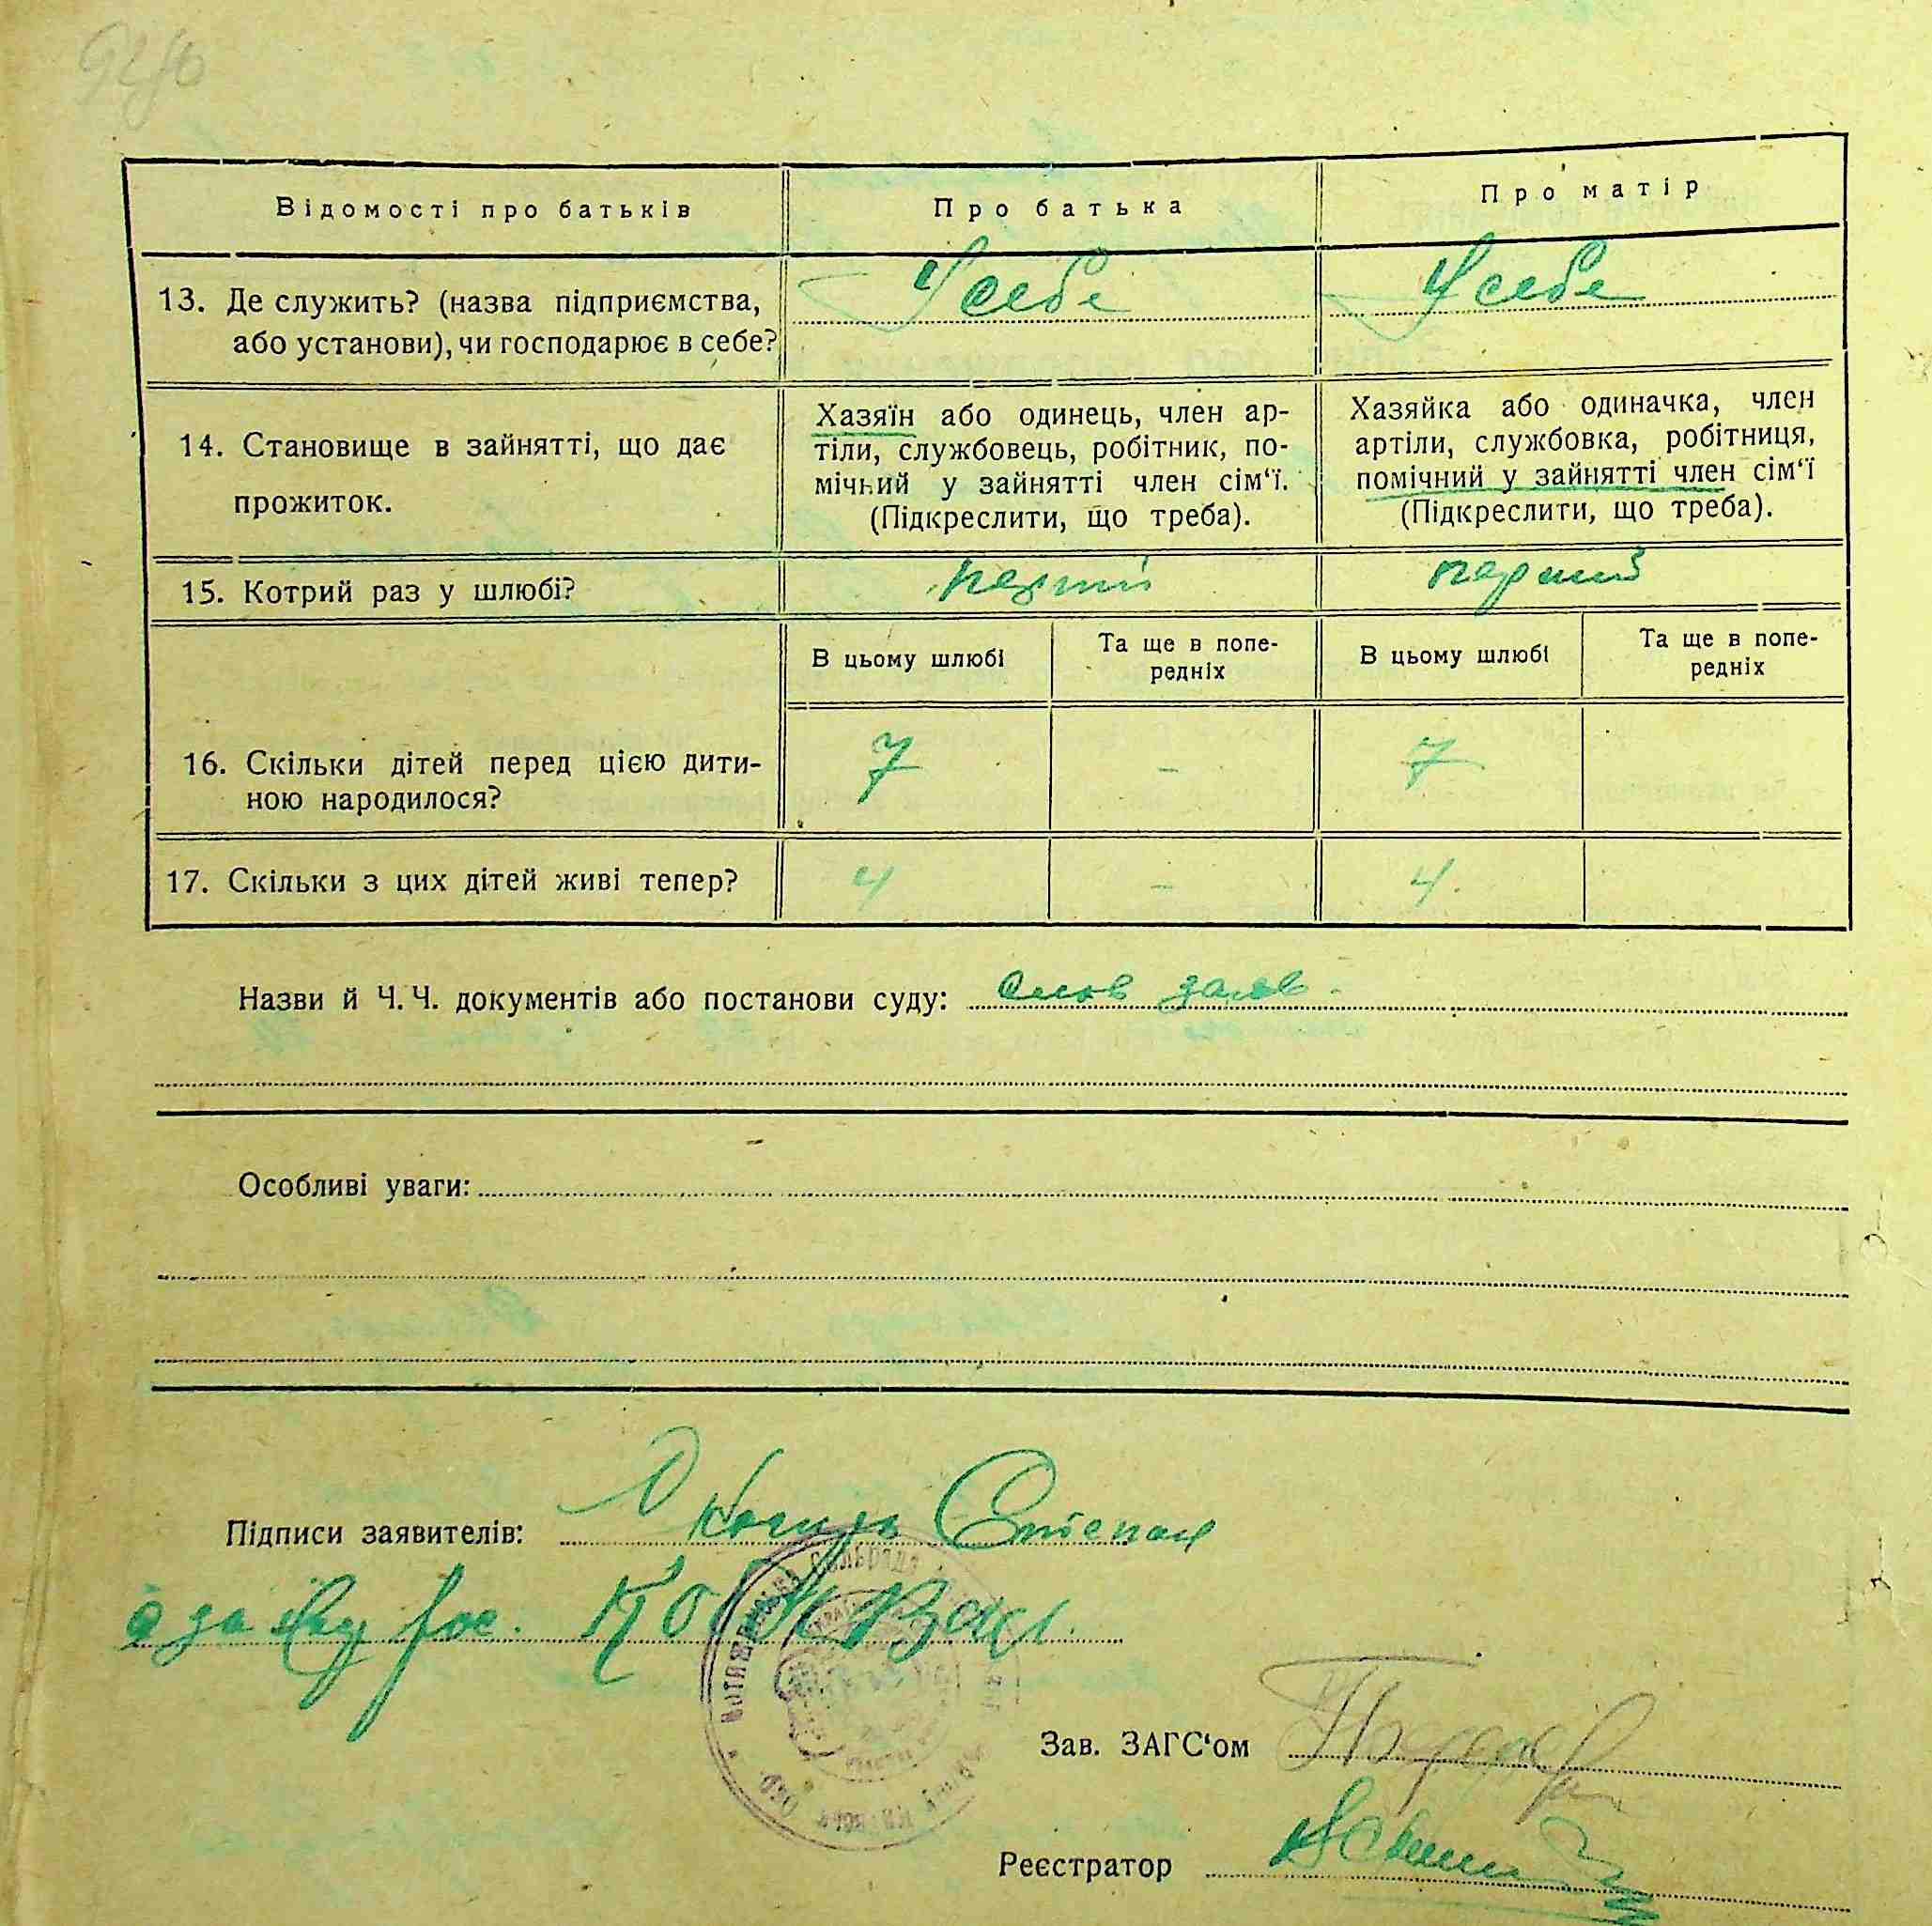 Відомості про батьків
Про батька
Про матір
13. Де служить? (назва підприємства,
або установи), чи господарює в себе?
У себе
У себе
14. Становище в зайнятті, що дає
прожиток.
Хазяїн або одинець, член ар-
тіли, службовець, робітник, по-
мічний у зайнятті член сім‘ї.
(Підкреслити, що треба).
Хазяйка або одиначка, член
артіли, службовка, робітниця,
помічний у зайнятті член сім‘ї
(Підкреслити, що треба).
15. Котрий раз у шлюбі?
перший
перший
В цьому шлюбі
Та ще в попе-
редніх
В цьому шлюбі
Та ще в попе-
редніх
16. Скільки дітей перед цією дити-
ною народилося?
7
-
7
17. Скільки з цих дітей живі тепер?
4
-
4.
Назви й Ч.Ч. документів або постанови суду: Слов заяв.
Особливі уваги:
Підписи заявителів: Степан
а за
Зав. ЗАГС‘ом
Реєстратор